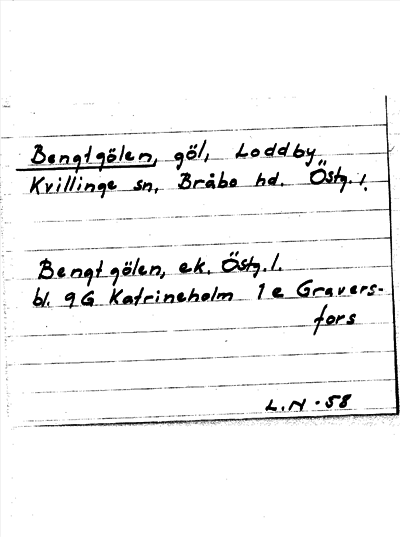 Bengtgölen, göl, Loddby
Kvillinge sn, Bråbo hd. Östg. l.
Bengtgölen, ek. Östg. l.
bl. 9G Katrineholm 1e Gravers-
fors
L.N - 58